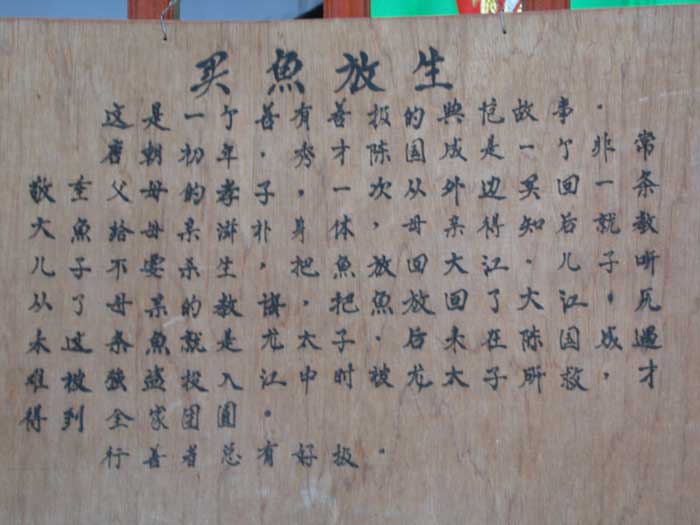 买魚放生
这是一个善有善报的典范故事。
唐朝初年,秀才陈国成是一个非常
敬重父母的孝子,一次从外边买回一条
大魚给母亲滋补身体,母亲得知后就教
儿子不要杀生,把魚放回大江。儿子听
从了母亲的教诲,把魚放回了大江。原
来这条魚就是尤太子。后来在陈国成遇
难被強盗投入江中时,被尤太子所救,才
得到全家团圆。
行善者总有好报。